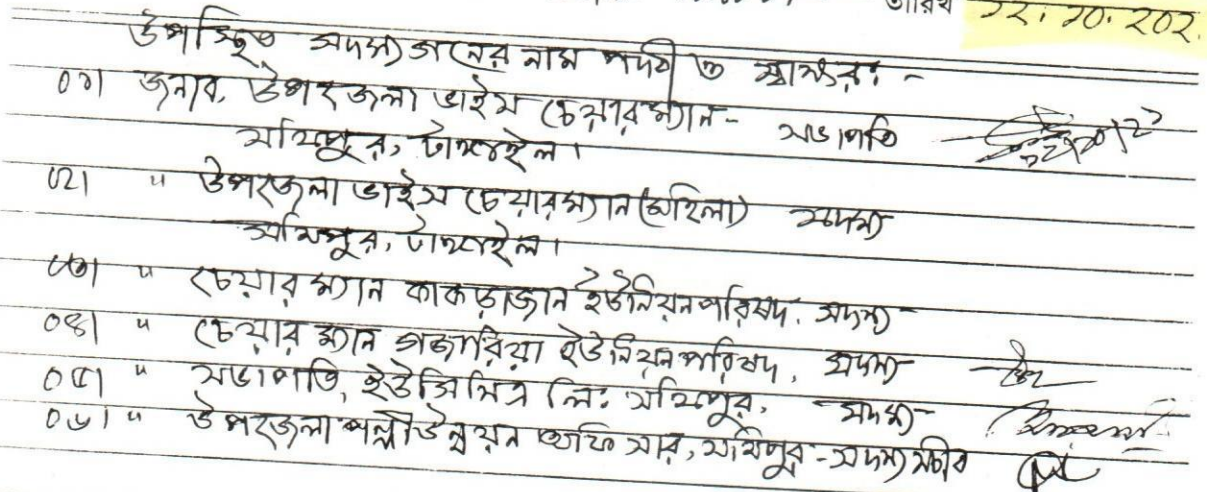 তারিখ ১২.১০.২০২
উপস্থিত সদস্যগনের নাম পদবী ও স্বাক্ষর:-
০১। জনাব, উপজেলা ভাইস চেয়ারম্যান- সভাপতি
সখিপুর, টাঙ্গাইল।
০২। " উপজেলা ভাইস চেয়ারম্যান (মহিলা) সদস্য
সখিপুর, টাঙ্গাইল।
০৩। " চেয়ারম্যান কাকড়াজান ইউনিয়ন পরিষদ, সদস্য
০৪। " চেয়ারম্যান গজারিয়া ইউনিয়ন পরিষদ, সদস্য
০৫। " সভাপতি, ইউসিসিএ লিঃ সখিপুর, সদস্য
০৬। " উপজেলা পল্লী উন্নয়ন অফিসার, সখিপুর-সদস্য সচীব